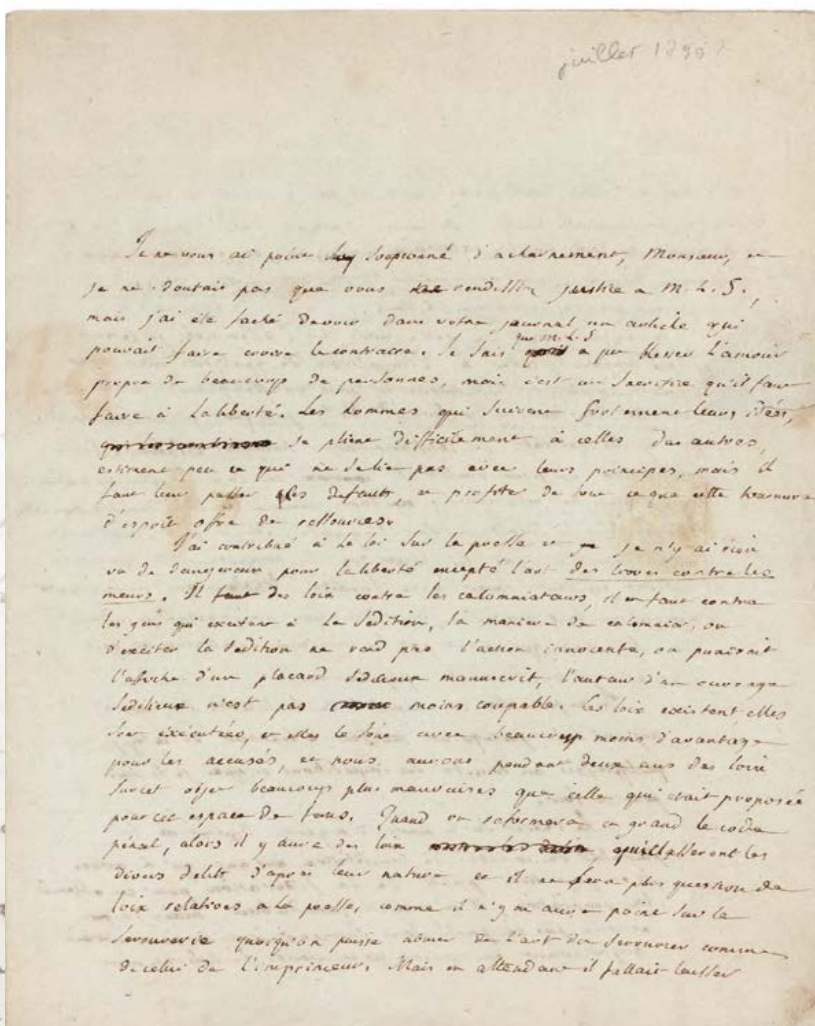 juillet 1790?
Je ne vous ai point soupçonné d'acharnement, Monsieur, et
je ne doutais pas que vous rendissiez justice a M. L. S.,
mais j'ai été faché de voir dans votre journal un article qui
pouvait faire croire le contraire. Je sais que M. L. S a pu blesser l'amour
propre de beaucoup de personnes, mais c'est un sacrifice qu'il faut
faire à la liberté. Les hommes qui suivent fortement leurs idées,
se plient difficilement à celles des autres,
estiment peu ce qui ne se lie pas avec leurs principes, mais il
faut leur passer ces défauts, et profiter de tout ce que cette tournure
d'esprit offre de ressources.
J'ai contribué à la loi sur la presse et je n'y ai rien
vu de dangereux pour la liberté excepté l'art des contre les
meurs. Il faut des loix contre les calomniateurs, il en faut contre
les gens qui excitent à la sedition, la maniere de calomnier, ou
d'exciter la sedition ne rend pas l'action innocente, on punirait
l'affiche d'un placard seditieux manuscrit, l'auteur d'un ouvrage
seditieux n'est pas moins coupable. Les loix existent, elles
sont exécutées, et elles le sont avec beaucoup moins d'avantage
pour les accusés, et nous aurons pendant deux ans des loix
sur cet objet beaucoup plus mauvaises que celle qui était proposée
pour cet espace de tems. Quand on reformera en grand le code
pénal, alors il y aura des loix les
divers delits d'après leur nature et il ne sera plus question de
loix relatives a la presse, comme il n'y en aura point sur la
serrurerie quoiqu'on puisse abuser de l'art du serrurier comme
de celui de l'imprimeur. Mais en attendant il fallait laisser